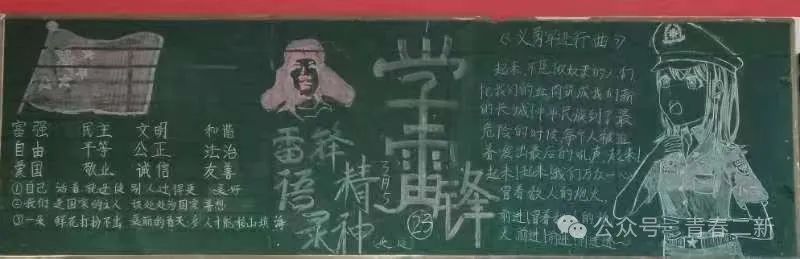 富强 民主 文明 和谐
自由 平等 公正 法治
爱国 敬业 诚信 友善
①自己 活着 就是使 别人过得 更 美好
②我们 是国家的主人 该处处为国家着想
③一朵 鲜花打扮不出 美丽的春天 人才能移山填海
雷锋
语录
精神
3月5
学雷锋
23
《义勇军进行曲》
起来,不愿做奴隶的人们
把我们的血肉筑成我们新
的长城 中华民族到了最
危险的时候每个人被迫
着发出最后的吼声,起来!
起来!起来!我们万众一心
冒着敌人的炮火,
前进!冒着敌人的炮
火 前进!前进!前进进
公众号 · 青春二新